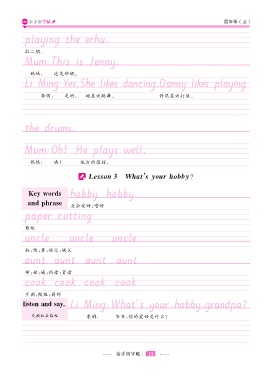 四年级（上）
playing the erhu.
拉二胡。
Mum: This is Jenny.
妈妈： 这是珍妮。
Li Ming: Yes. She likes dancing. Danny likes playing
李明： 是的。 她喜欢跳舞。 丹尼喜欢打鼓。
the drums.
Mum: Oh! He plays well.
妈妈： 哦！ 他打的很好。
Lesson 3 What's your hobby?
Key words and phrase
hobby hobby
业余爱好；嗜好
paper cutting
剪纸
uncle uncle uncle
aunt aunt aunt aunt
cook cook cook cook
listen and say.
Li Ming: What's your hobby, grandpa?
李明： 爷爷，你的爱好是什么？